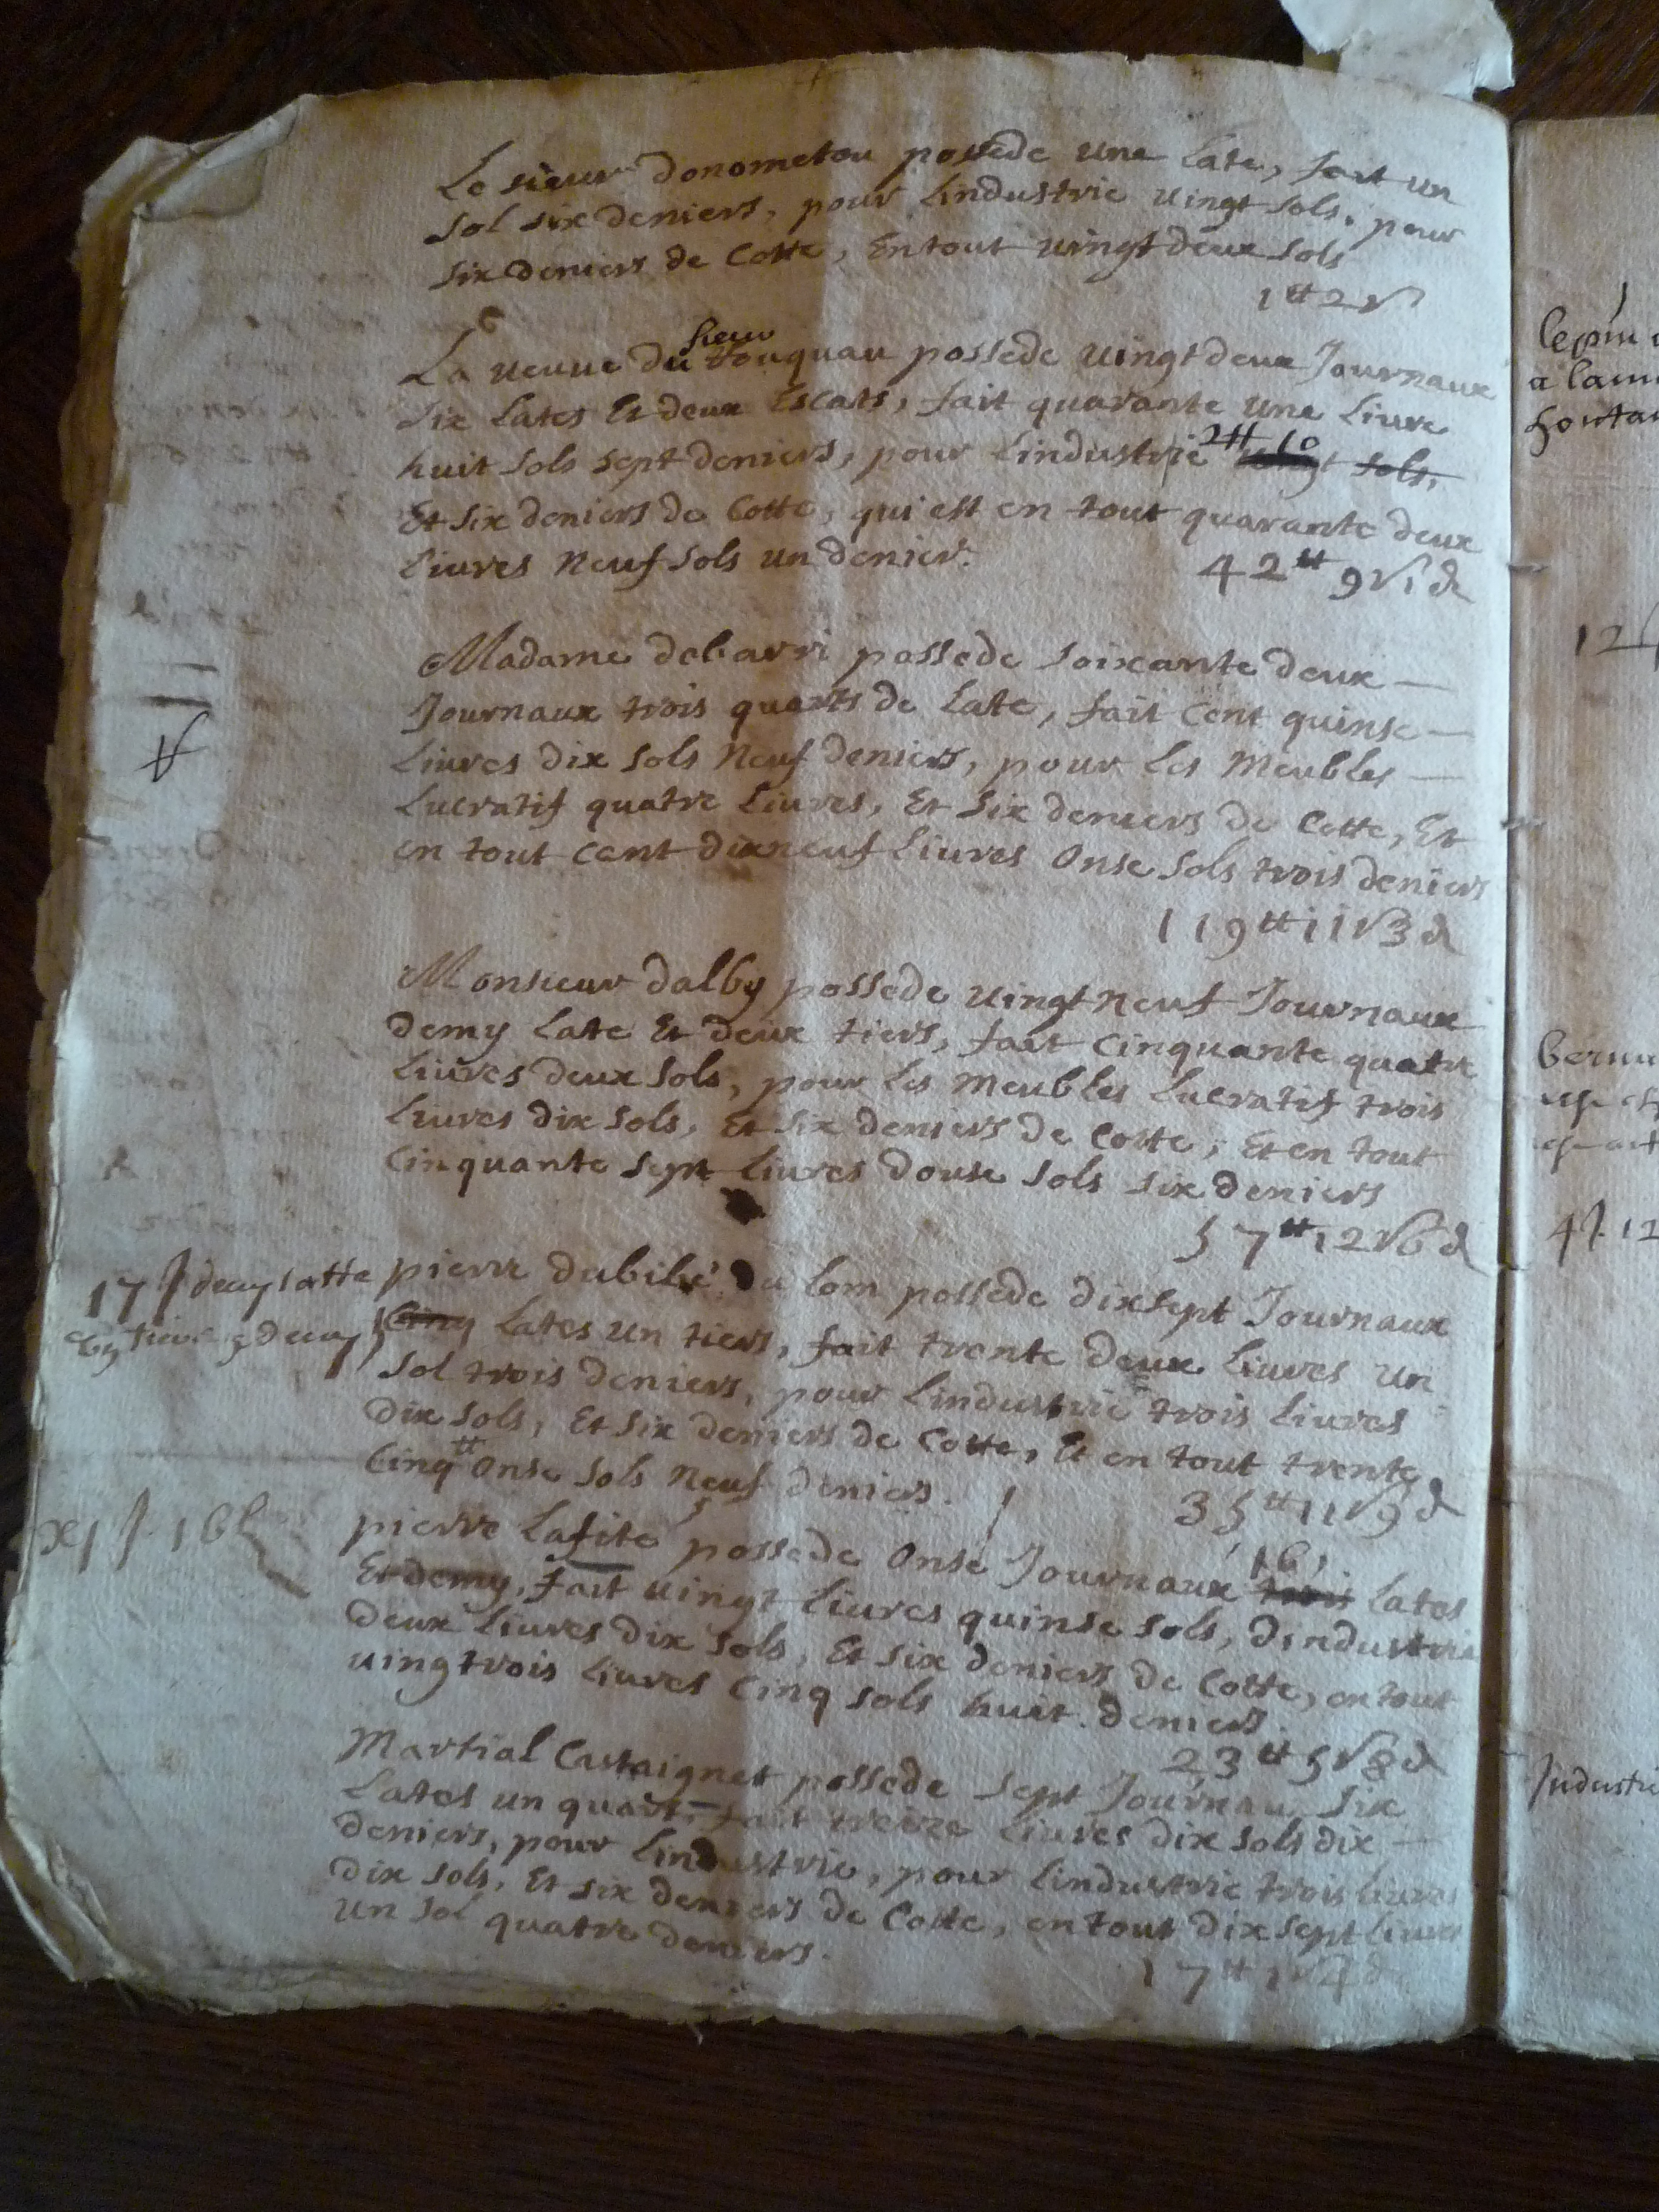 Le sieur Donometou possede une Late, fait un
sol six deniers, pour Lindustrie uingt sols, pour
six deniers de Cotte, En tout uingt deux sols
1 ₶ 2 s
sieur
La ueuue du Touquau possede uingt deux Journaux
six Lates Et deux Escats, fait quarante une Liure
huit sols sept deniers, pour Lindustrie uingt sols,
2₶ 10
Et six deniers de Cotte, qui est en tout quarante deux
Liures Neuf sols un denier.
42 ₶ 9 s 1 d
Madame debarri possede soixante deux —
Journaux trois quarts de Late, fait Cent quinse —
Liures dix sols Neuf deniers, pour Les Meubles —
Lucratif quatre Liures, Et six deniers de Cotte, Et
en tout Cent dixneuf Liures Onse sols trois deniers
119 ₶ 11 s 3 d
Monsieur dalby possede uingt neuf Journaux
demy Late Et deux tiers, fait Cinquante quatre
Liures deux sols, pour Les Meubles Lucratif trois
Liures dix sols, Et six deniers de Cotte, Et en tout
Cinquante sept Liures douse sols six deniers
57 ₶ 12 s 6 d
17 J demy latte
pierre dubilé du lom possede dixsept Journaux
Cinq Lates un tiers, fait trente deux Liures un
sol trois deniers, pour Lindustrie trois Liures
dix sols, Et six deniers de Cotte, Et en tout trente
Cinq ₶ Onse sols Neuf deniers.
35 ₶ 11 s 9 d
xj J. 16 l
pierre Lafite possede Onse Journaux trois Lates
16
Et demy, fait uingt Liures quinse sols, dindustrie
deux Liures dix sols, Et six deniers de Cotte, en tout
uingtrois Liures Cinq sols huit deniers.
23 ₶ 5 s 8 d
Martial Castaignet possede sept Journau six
Lates un quart, fait treize Liures dix sols dix —
deniers, pour Lindustrie, pour Lindustrie trois Liures
dix sols, Et six deniers de Cotte, en tout dix sept Liures
un sol quatre deniers.
17 ₶ 1 s 4 d
Industri